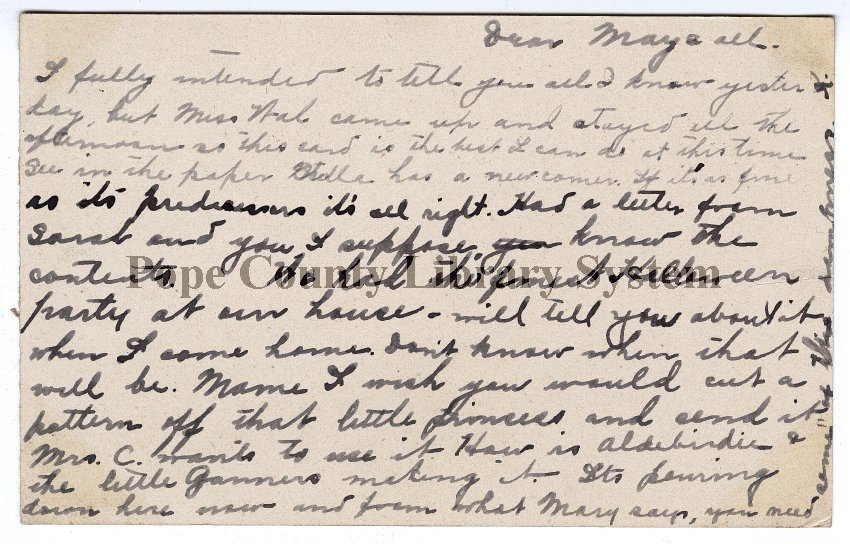 Dear May & all.
I fully intended to tell you all I know yester
day, but Miss Hal came up and stayed all the
afternoon so this card is the best I can do at this time
See in the paper Stella has a new comer. If it's as fine
as its predecessors it's all right. Had a letter from
Sarah and you, I suppose, know the
contents. We had the finest Halloween
party at our house - will tell you about it
when I come home. Don't know when that
will be. Mame I wish you would cut a
pattern off that little princess and send it
Mrs. C. wants to use it How is Aldebirdie &
the little Ganners making it. Its pouring
down here now and from what Mary says, you need
some of this
Pope County Library System